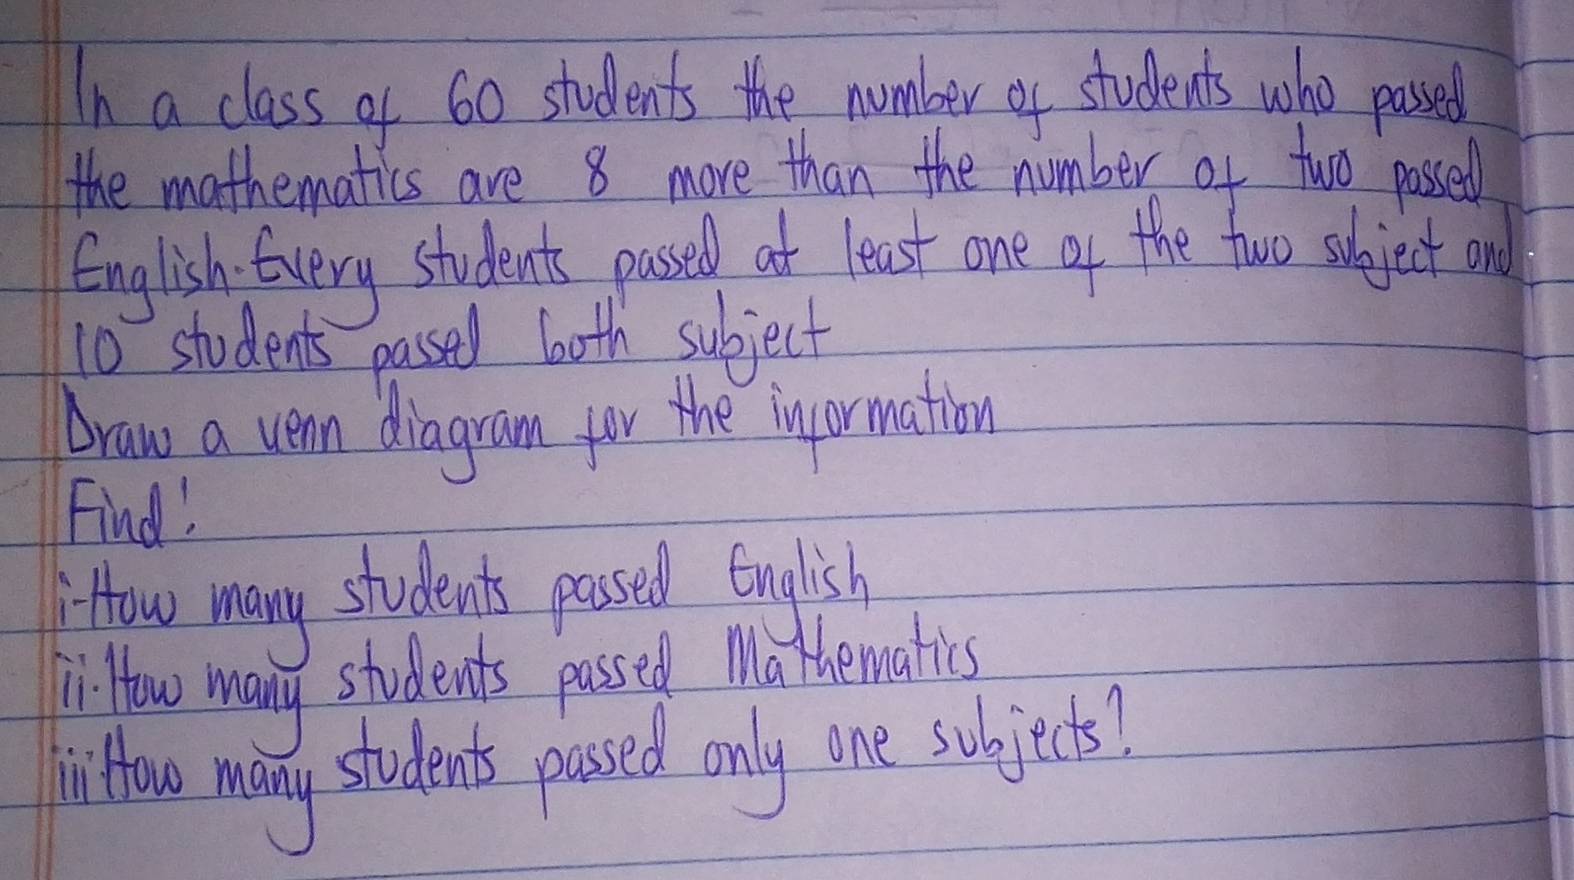 In a class of 60 students the number of students who passed
the mathematics are 8 more than the number of two passed
English. Every students passed at least one of the two subject and
10 students passed both subject
Draw a venn diagram for the information
Find!
i-How many students passed English
ii. How many students passed Mathematics
iii How many students passed only one subjects?